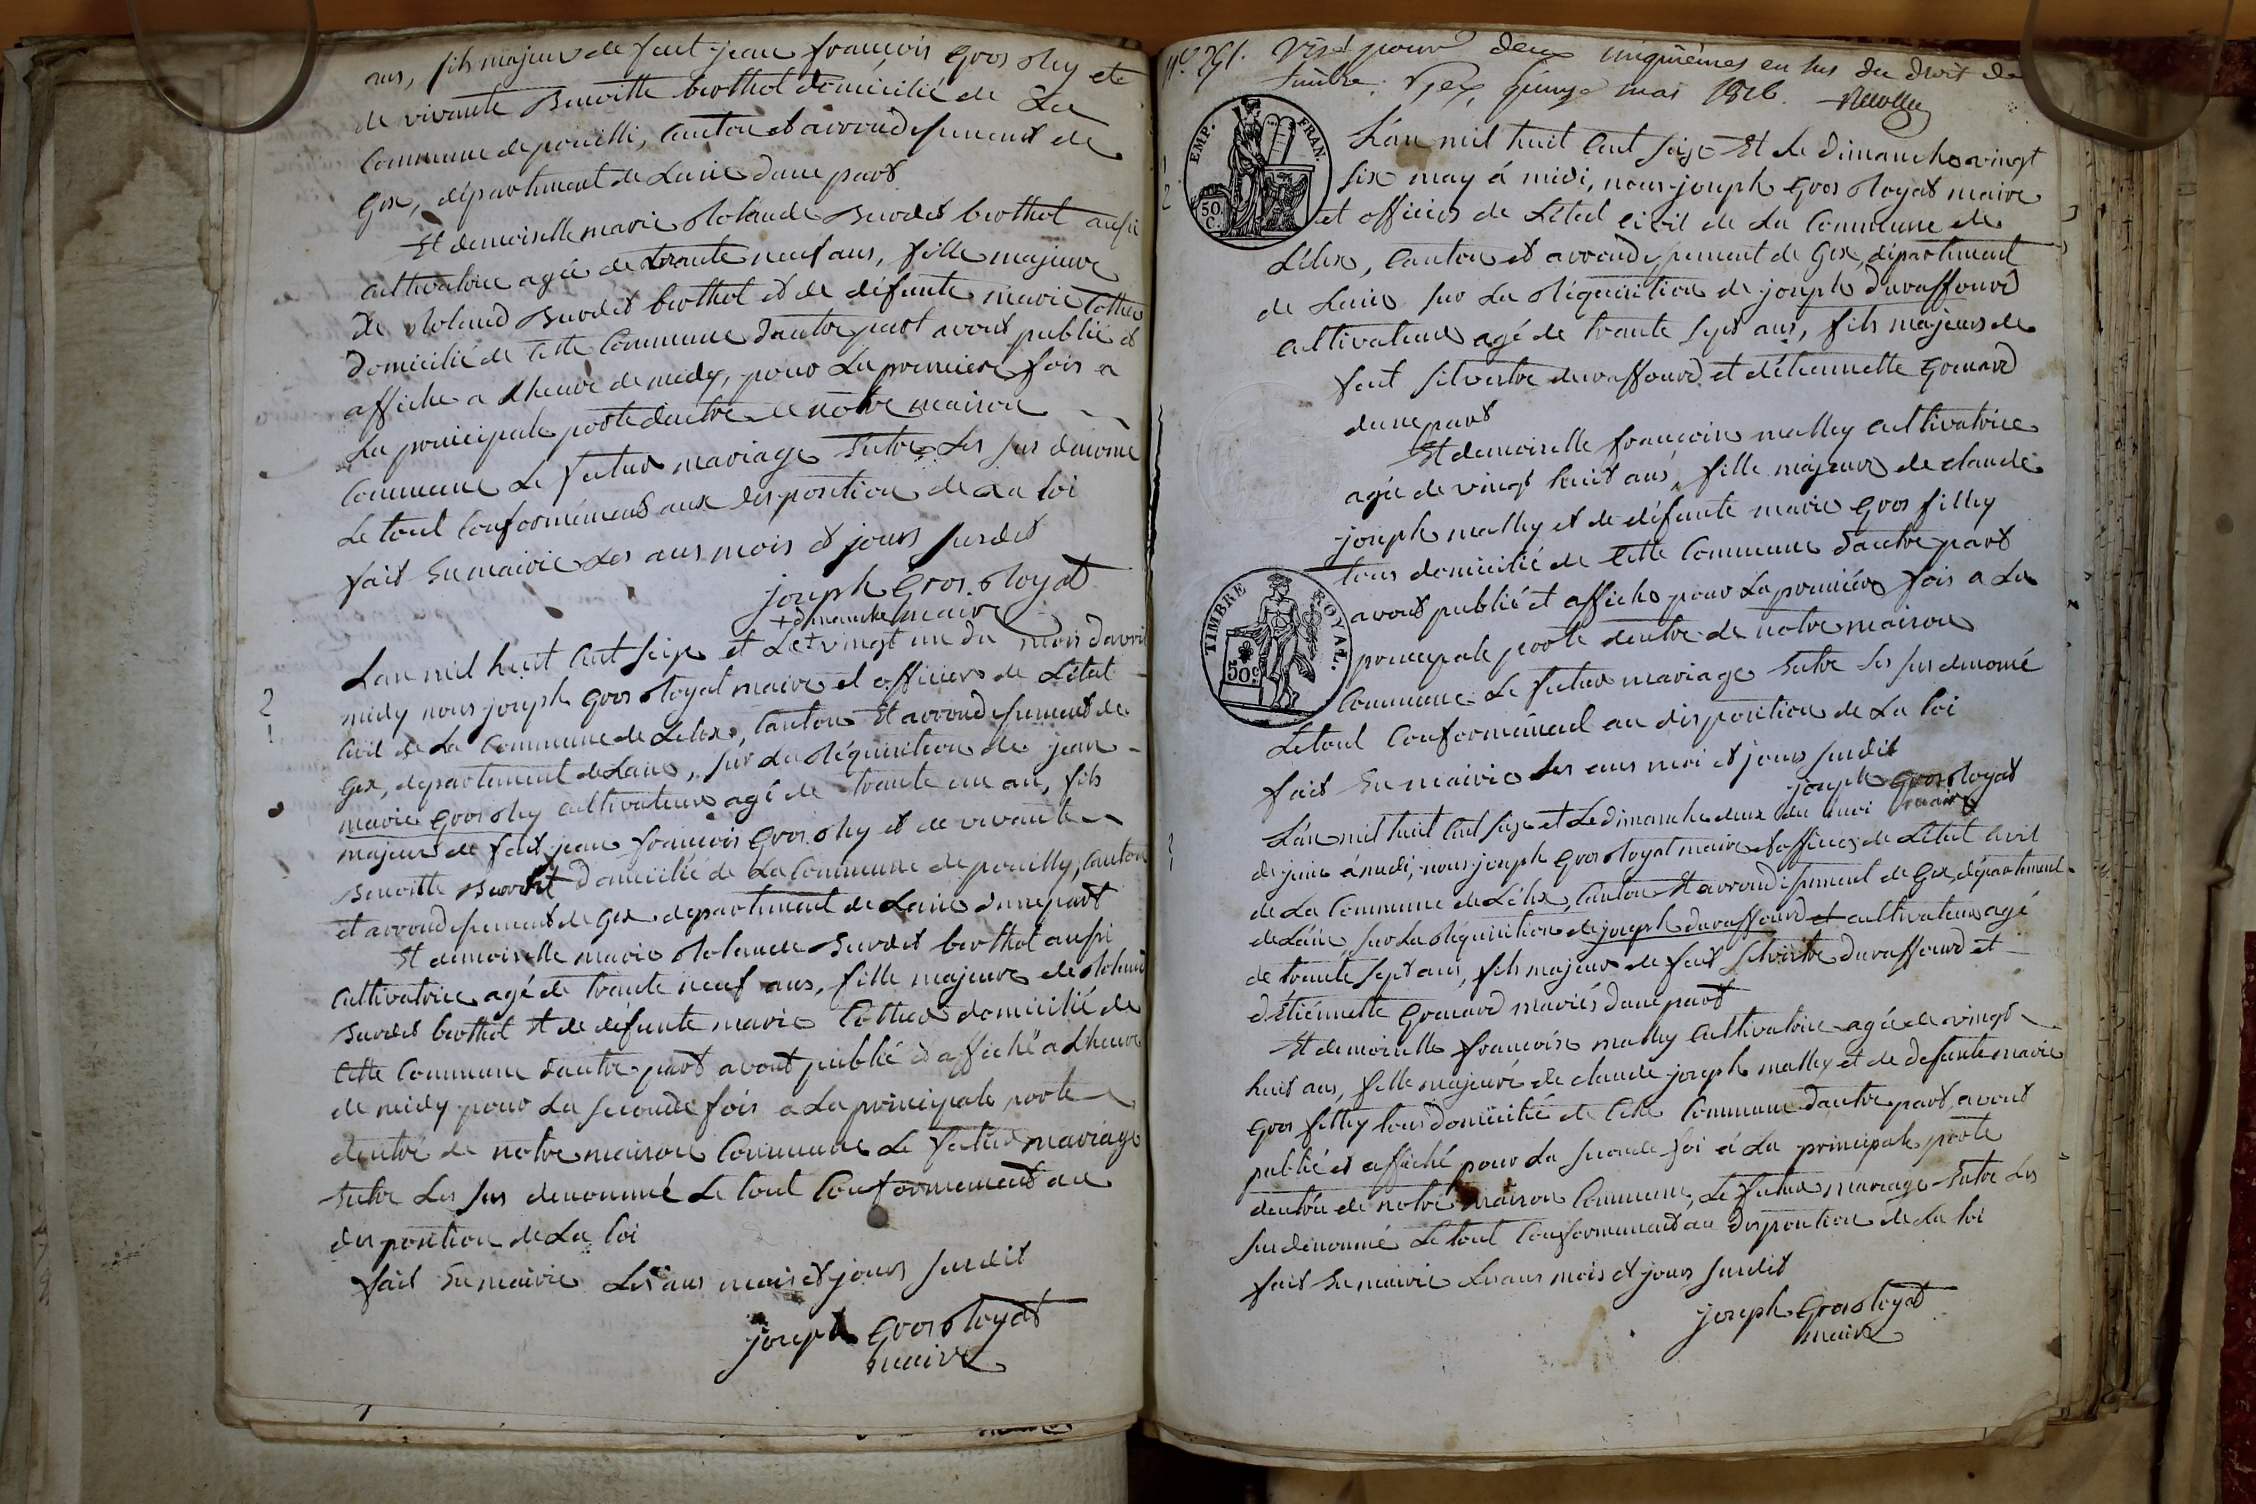 ans, fils majeur de feut jean françois Gros oley et
de vivante Benoitte berthot domicilié de La
Commune de pouilli, Canton et arrondissement de
Gex, département de Lain dune part
Et demoiselle marie Rolande Burdet berthot aussi
cultivatrice agée de trante neuf ans, fille majeure
de Roland Burdet berthot et de défunte marie
domicilié de cette Commune dautre part avons publié et
affiche a Lheure de midy, pour La premiere fois a
La principale porte dentre de notre maison
Commune Le futur mariage Entre Les sus denomé
Le tout Conformément aux disposition de La loi
fait En mairie Les ans mois et jours susdit
joseph Gros Royat
maire
+ dimanche
Lan mil huit Cent seize et Le + vingt un du mois davril
2
midy nous joseph Gros Royat maire et officier de Létat
1
Civil de La Commune de Lelex, Canton Et arrondissement de
Gex, departement de Lain, sur La Réquisition de jean
marie Gros oley cultivateur agé de trante un an, fils
majeur de feut jean françois Gros oley et de vivante
Benoitte domicilié de La Commune de pouilly, Canton
et arrondissement de Gex departement de Lain dune part
Et demoiselle marie Rolande Burdet berthot aussi
Cultivatrice agé de trante neuf ans, fille majeure de Roland
Burdet berthot Et de défunte marie domicilié de
Cette Commune dautre part avons publié et affiché a Lheure
de midy pour La seconde fois a La principale porte
dentré de notre maison Commune Le futur mariage
Entre Les sus denommé Le tout Conformement au
disposition de La loi
fait En mairie Les ans mois et jours susdit
joseph Gros Royat
maire
N.° Visé pour deux cinquièmes en sus du droit de
timbre. Gex, mai 1816.
EMP. FRAN.
50 C.
Lan mil huit Cent seize Et Le dimanche vingt
six may à midi, nous joseph Gros Royat maire
et officier de Létat civil de La Commune de
Lélex, Canton et arrondissement de Gex, département
de Lain sur La Réquisition de joseph duraffourd
cultivateur agé de trante sept ans, fils majeur de
feut silvestre duraffourd et détiennette Grenard
dune part
Et demoiselle françoise malley cultivatrice
agée de vingt huit ans, fille majeure de claude
joseph malley et de défunte marie Gros filley
tous domicilié de Cette Commune dautre part
TIMBRE ROYAL.
50 c
avons publié et affiche pour La première fois a La
principale porte dentre de notre maison
Commune Le futur mariage Entre Les sus denomé
Le tout Conformément au disposition de La loi
fait En mairie Les ans moi et jours susdit
joseph Gros Royat
maire
Lan mil huit Cent seize et Le dimanche deux du moi
de juin à midi, nous joseph Gros Royat maire et officier de Létat Civil
de La Commune de Lélex, Canton Et arrondissement de Gex, département
de Lain sur La Réquisition de joseph duraffourd et cultivateur agé
de trante sept ans, fils majeur de feut silvestre duraffourd et
détiénnette Grenard mariés dune part
Et demoiselle françoise malley Cultivatrice agée de vingt
huit ans, fille majeure de claude joseph malley et de defunte marie
Gros filley tous domicilié de Cette Commune dautre part, avons
publié et affiché pour La seconde foi à La principale porte
dentrée de notre maison Commune, Le futur mariage Entre Les
sus dénommé Le tout Conformement au disposition de La loi
fait En mairie Les ans mois et jours susdit
joseph Gros Royat
maire